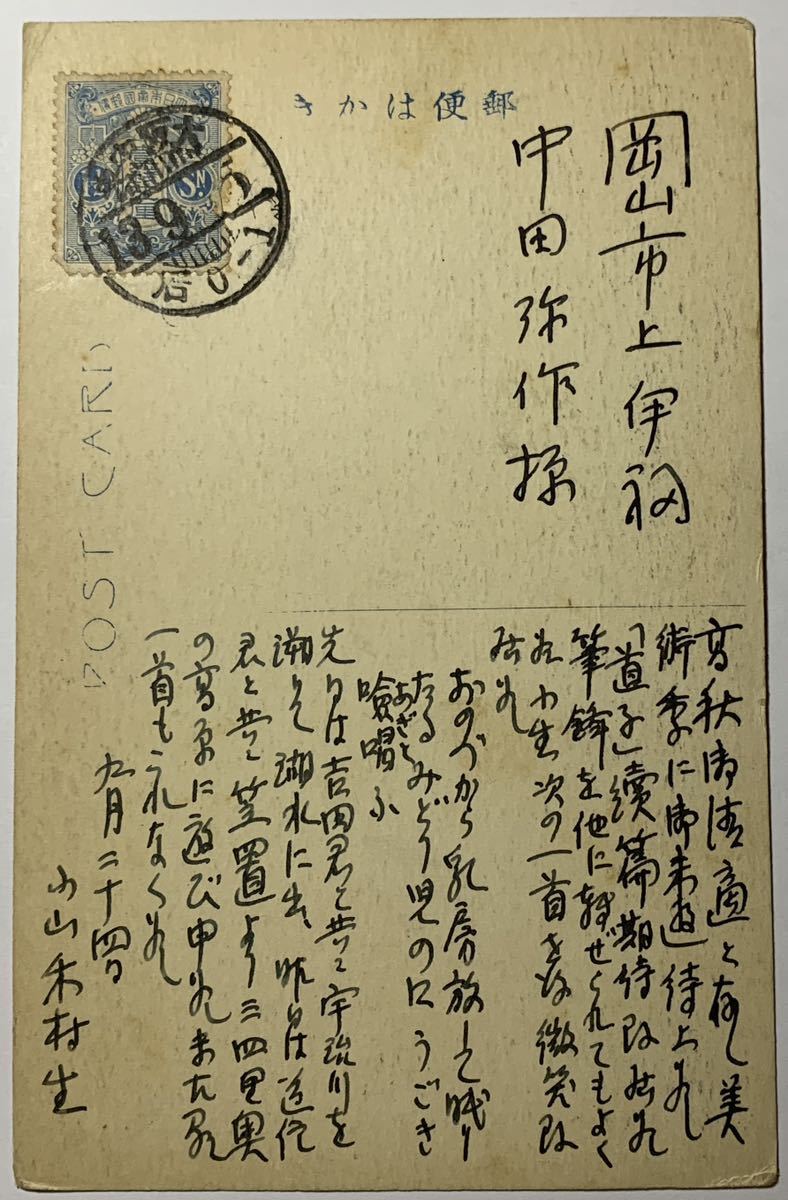 郵便はかき
大日本帝國郵便
1½ Sɴ
13 9
POST CARD
岡山市上伊福
中田弥作様
高秋御清適と存じ美
術季に御来遊待上候
「直子」續篇期待致居候
筆鋒を他に轉ぜられてもよく
候小生次の一首を得微笑致
居候
おのづから乳房放して眠り
たるみどり児の口うごき
噞喁ふ
あぎとふ
先日は吉田君と共に宇治川を
溯りて湖水に出、昨日は
君と共に笠置より三四里奥
の高原に遊び申候まだ歌
一首もこれなく候
九月二十四日
小山禾村生